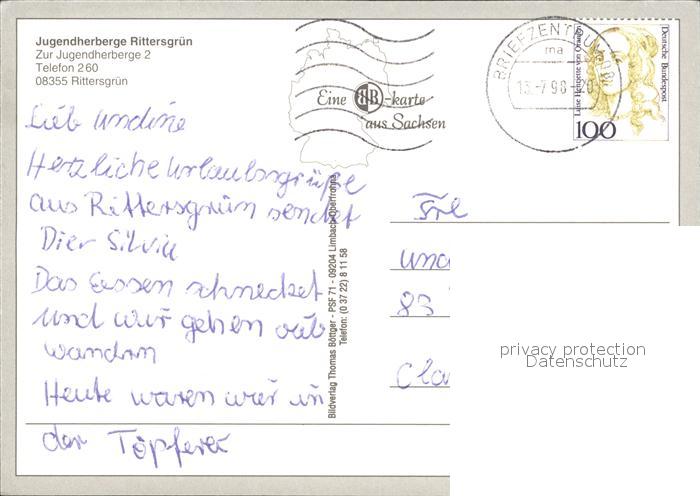 Jugendherberge Rittersgrün
Zur Jugendherberge 2
Telefon 260
08355 Rittersgrün
Eine BB-karte
aus Sachsen
BRIEFZENTRUM
ma
13.-7.98
Deutsche Bundespost
Luise Henriette von Oranien
100
Lieb Undine
Herzliche Urlaubsgrüße
aus Rittersgrün sendet
Dier Silvia
Das Eessen schmecket
und wir gehen oub
wandrn
Heute waren wir in
der Töpferei
Bildverlag Thomas Böttger - PSF 71 - 09204 Limbach-Oberfrohna
Telefon: (0 37 22) 8 11 58
Fre
und
83
Cla
privacy protection
Datenschutz